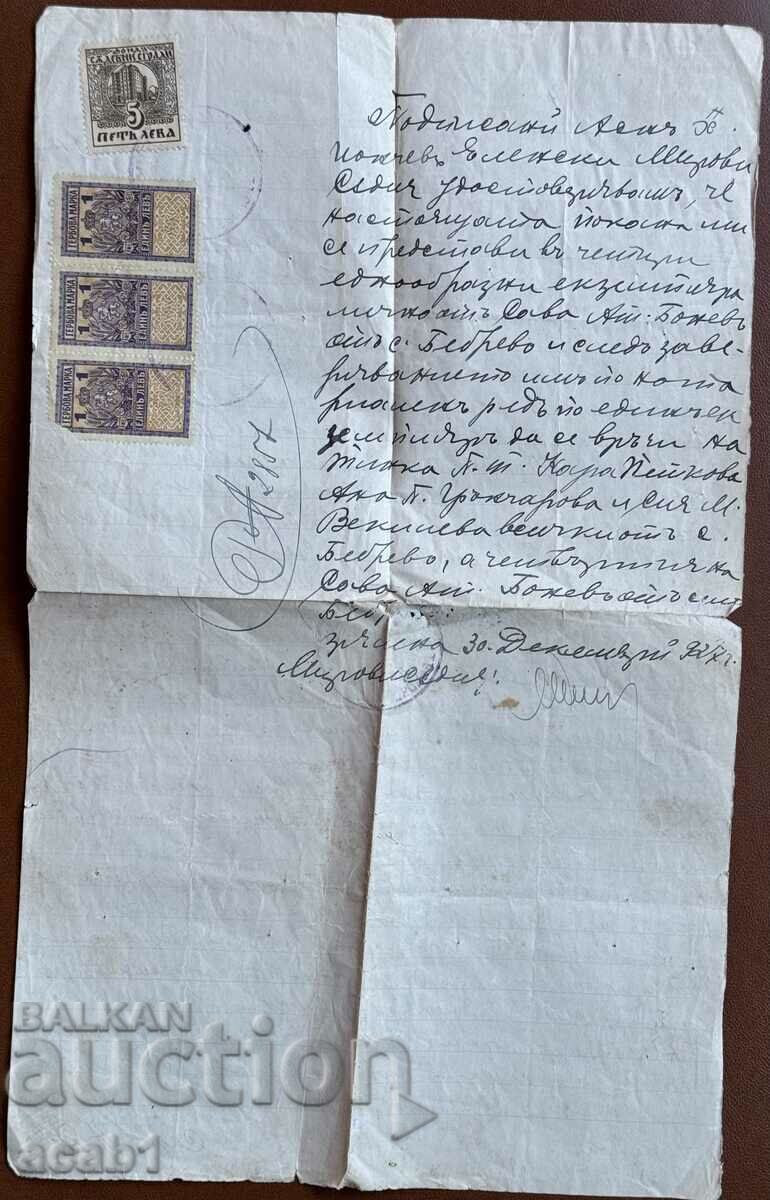 ФОНДЪ
СѪДЕБНИ СГРАДИ
5
ПЕТЬ ЛЕВА
ГЕРБОВА МАРКА
1 1
ЕДИНЪ ЛЕВЪ
ГЕРБОВА МАРКА
1 1
ЕДИНЪ ЛЕВЪ
ГЕРБОВА МАРКА
1 1
ЕДИНЪ ЛЕВЪ
№ 2807
Подписаний Асенъ
Еленски Мирови
Съдия удостоверявамъ, че
настоящата покана ми
се представи въ четири
еднообразни екземпляра
лично отъ Сава Ат. Божевъ
отъ с. Бебрево и следъ заве-
ряванието имъ по нота
риаленъ редъ по единъ ек
земпляръ да се връчи на
П. Т. Кара Пейкова
Ана П. Грънчарова и М.
Векилева всичкиотъ с.
Бебрево, а четвъртия на
Сава Ат. Божевъ отъ с.
Беб
30. Декемврий 927 г.
Мировисъдия:
BALKAN
auction
acab1